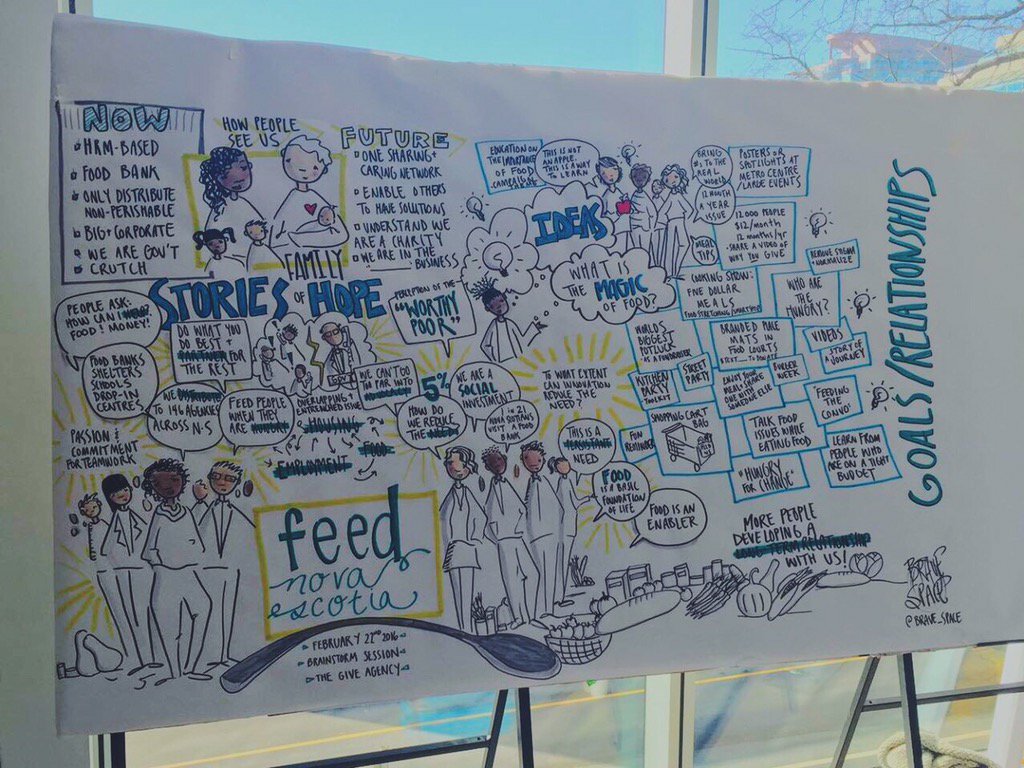 NOW
HRM-BASED
FOOD BANK
ONLY DISTRIBUTE
NON-PERISHABLE
BIG + CORPORATE
WE ARE GOV'T
CRUTCH
HOW PEOPLE
SEE US
FAMILY
FUTURE
ONE SHARING +
CARING NETWORK
ENABLE OTHERS
TO HAVE SOLUTIONS
UNDERSTAND WE
ARE A CHARITY
WE ARE IN THE
BUSINESS
STORIES OF HOPE
PEOPLE ASK:
HOW CAN I HELP?
FOOD! MONEY!
FOOD BANKS
SHELTERS
SCHOOLS
DROP-IN
CENTRES
DO WHAT YOU
DO BEST +
PARTNER FOR
THE REST
WE DISTRIBUTE
TO 146 AGENCIES
ACROSS N-S
FEED PEOPLE
WHEN THEY
ARE HUNGRY
GOV'T
OVERLAPPING +
ENTRENCHED ISSUE
HOUSING
FOOD
EMPLOYMENT
PERCEPTION OF THE
"WORTHY
POOR"
WE CAN'T GO
TO FAR INTO
ADVOCACY
5%
HOW DO
WE REDUCE
THE NEED
WE ARE A
SOCIAL
INVESTMENT
1 IN 21
NOVA SCOTIANS
VISIT A FOOD
BANK
TO WHAT EXTENT
CAN INNOVATION
REDUCE THE
NEED?
THIS IS A
PERSISTENT
NEED
FOOD
IS A BASIC
FOUNDATION
OF LIFE
FOOD IS AN
ENABLER
PASSION &
COMMITMENT
FOR TEAMWORK
feed
nova
scotia
FEBRUARY 22ND 2016
BRAINSTORM SESSION
THE GIVE AGENCY
EDUCATION ON
THE IMPORTANCE
OF FOOD
CAMPAIGN
THIS IS NOT
AN APPLE.
THIS IS A WAY
TO LEARN
IDEAS
WHAT IS
THE MAGIC
OF FOOD?
BRING
IT TO THE
REAL
WORLD
12 MONTH
A YEAR
ISSUE
POSTERS OR
SPOTLIGHTS AT
METRO CENTRE
/LARGE EVENTS
MEAL
TIPS
12 000 PEOPLE
$12/month
12 months/yr
SHARE A VIDEO OF
WHY YOU GIVE
REMOVE STIGMA
NORMALIZE
COOKING SHOW:
FIVE DOLLAR
MEALS
FOOD STRETCHING/SMARTING
WHO ARE
THE
HUNGRY?
WORLD'S
BIGGEST
POTLUCK
A FUNDRAISER
BRANDED PLACE
MATS IN
FOOD COURTS
TEXT TO DONATE
VIDEOS
STORY OF
A JOURNEY
KITCHEN
PARTY
STREET
PARTY
ENJOY YOUR
MEAL? SHARE
ONE WITH
SOMEONE ELSE
BURGER
WEEK
"FEEDING
THE CONVO"
FUN
REMINDER
SHOPPING CART
BAG
TALK FOOD
ISSUES WHILE
EATING FOOD
"HUNGRY
FOR CHANGE"
LEARN FROM
PEOPLE WHO
ARE ON A TIGHT
BUDGET
MORE PEOPLE
DEVELOPING A
LONG-TERM RELATIONSHIP
WITH US!
GOALS/RELATIONSHIPS
BRAVE
SPACE
@BRAVE_SPACE